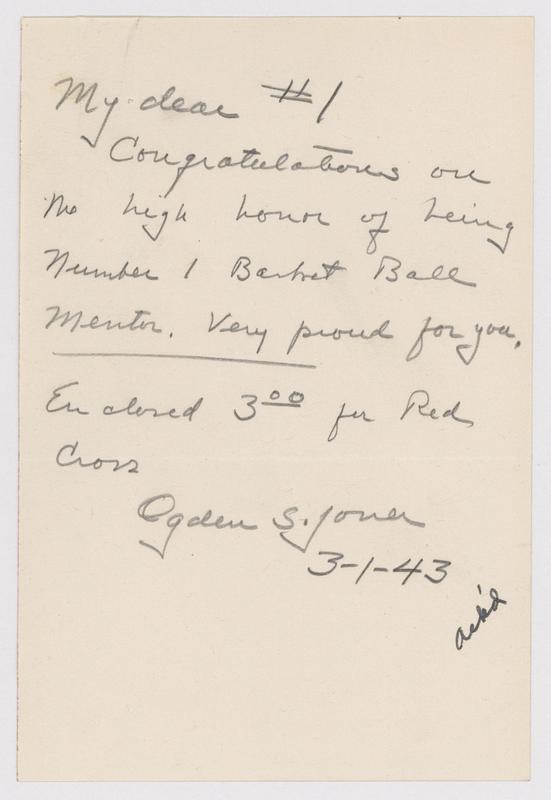 My dear #1
Congratulations on
the high honor of being
Number 1 Basket Ball
Mentor. Very proud for you.
Enclosed 3⁰⁰ for Red
Cross
Ogden S. Jones
3-1-43
ack'd